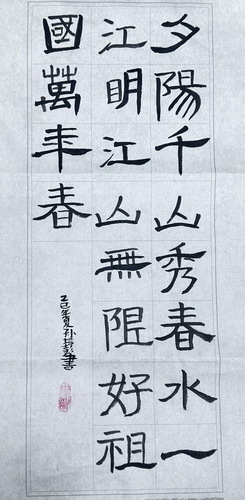 夕陽千山秀春水一
江明江山無限好祖
國萬年春
乙巳年夏孙書